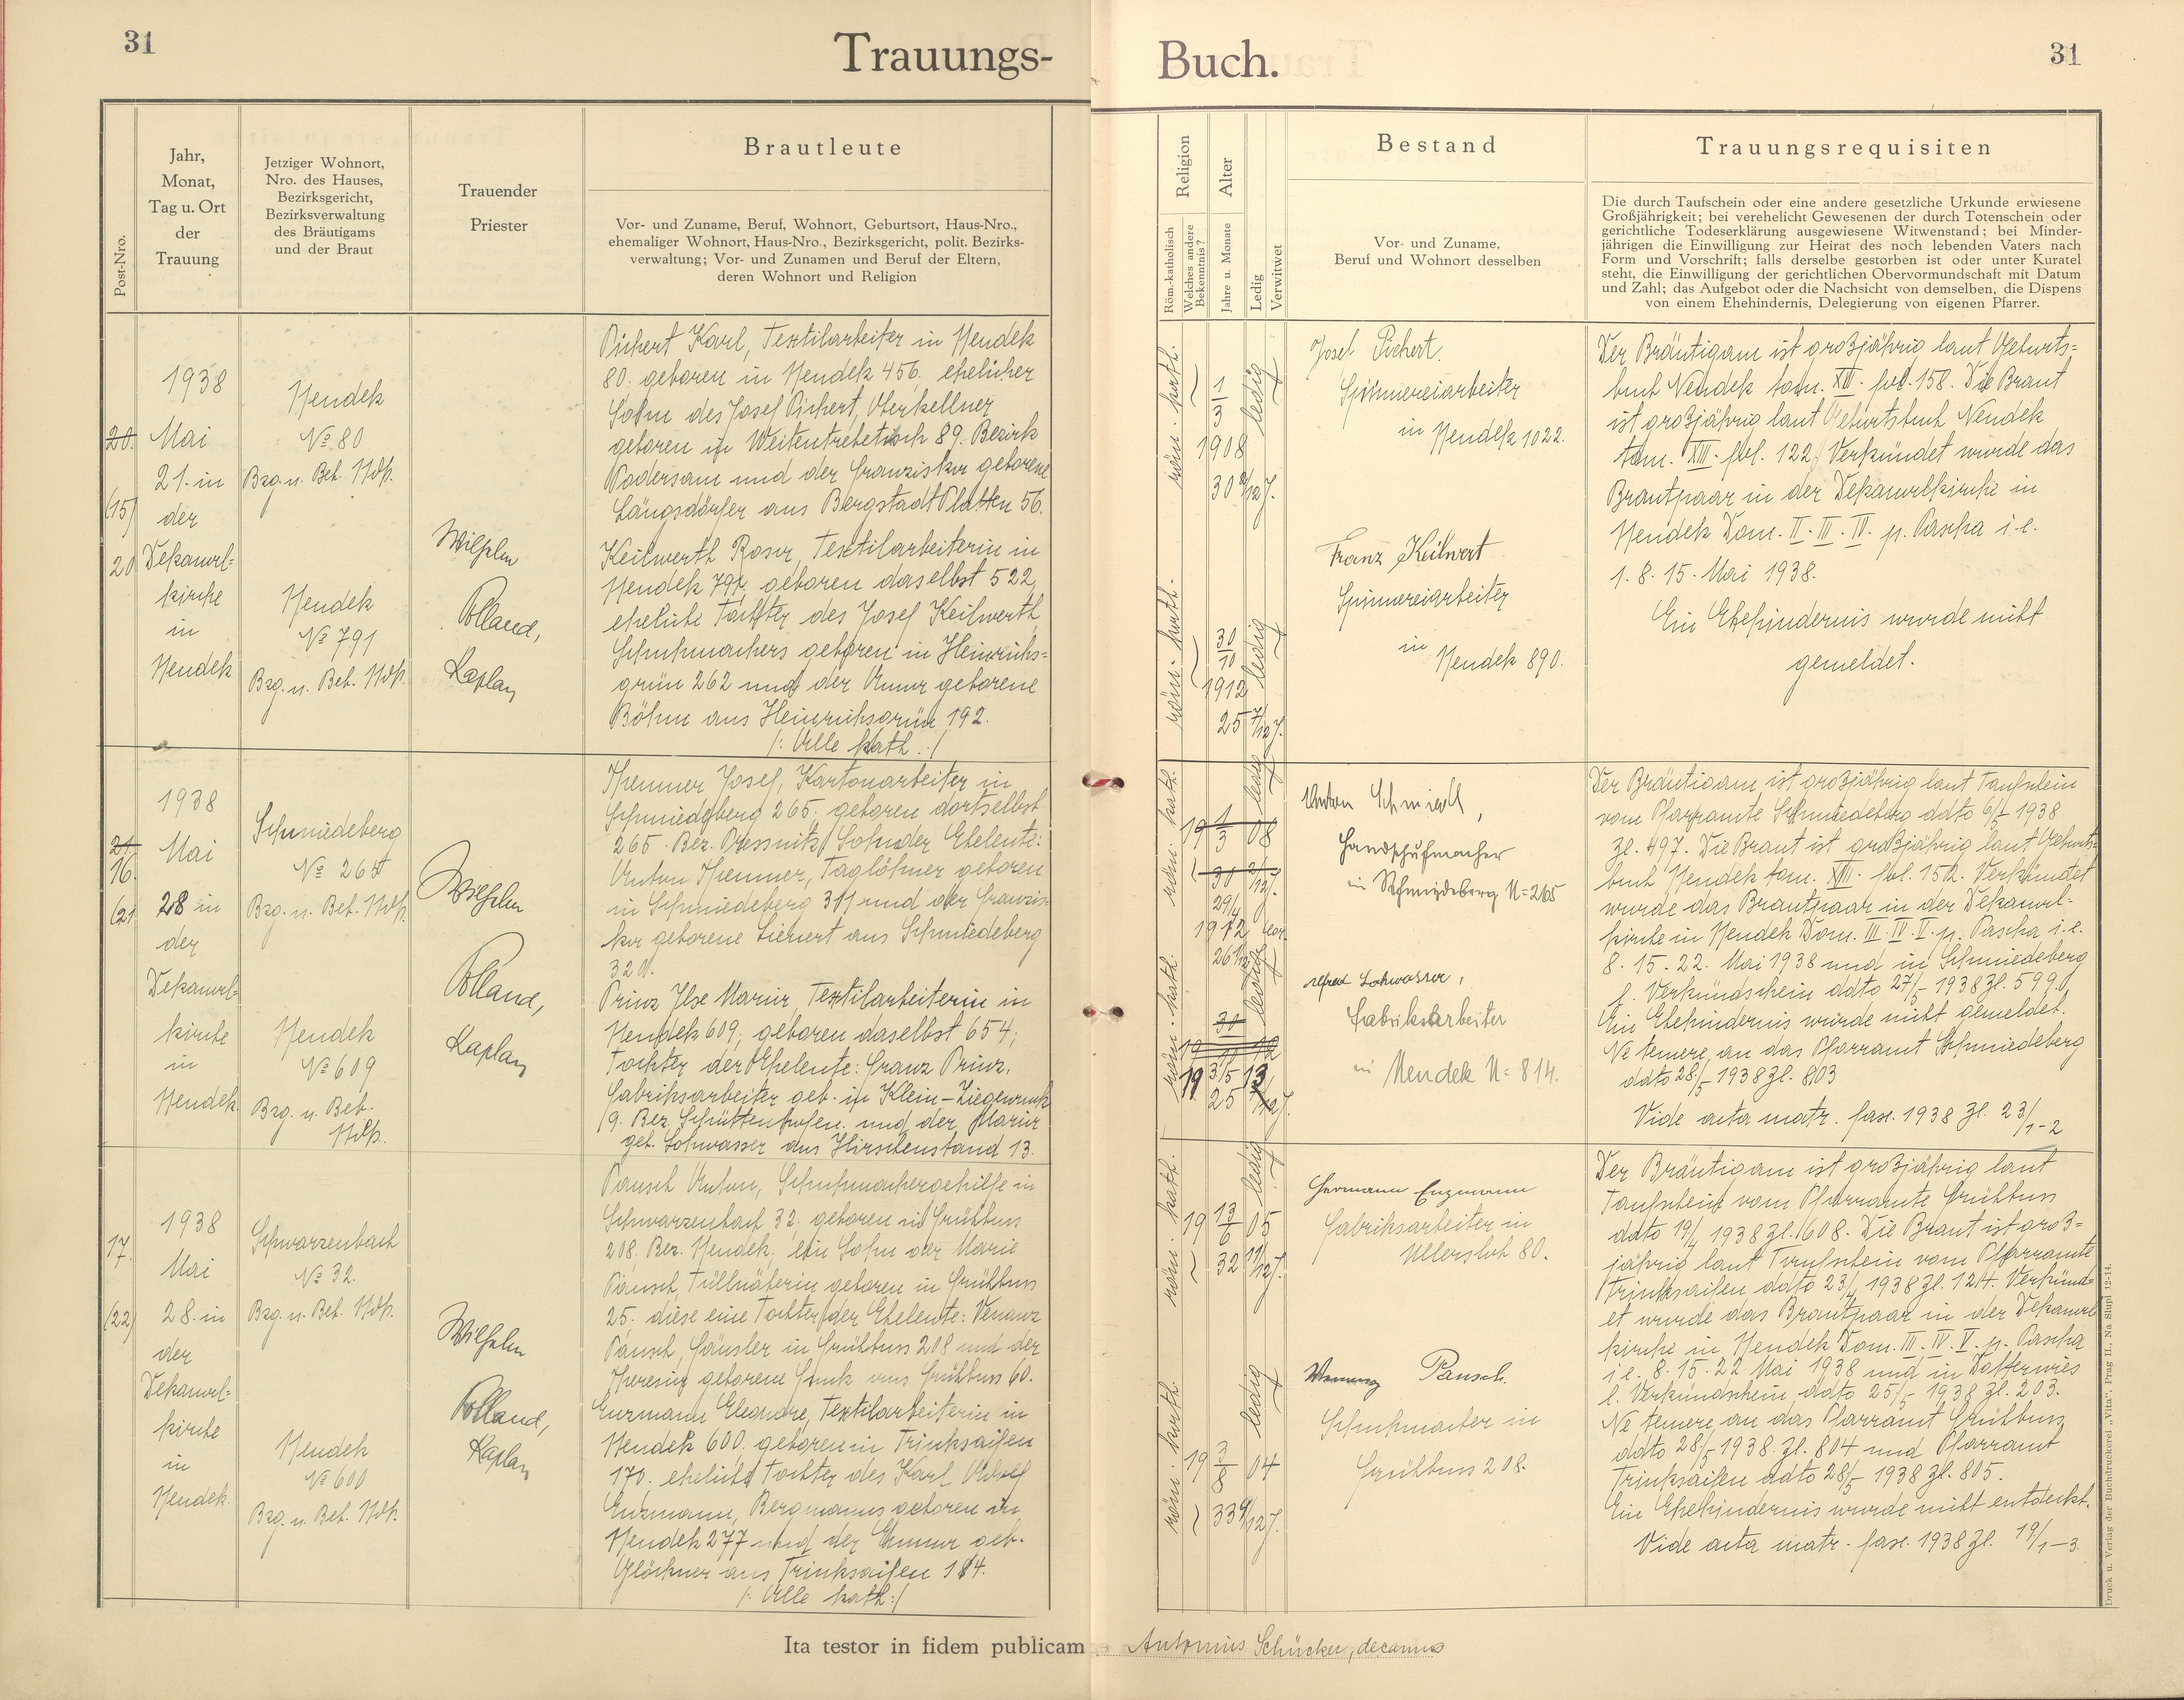 31
Trauungs-
Buch.
31
Post-Nro.
Jahr,
Monat,
Tag u. Ort
der
Trauung
Jetziger Wohnort,
Nro. des Hauses,
Bezirksgericht,
Bezirksverwaltung
des Bräutigams
und der Braut
Trauender
Priester
Brautleute
Vor- und Zuname, Beruf, Wohnort, Geburtsort, Haus-Nro.,
ehemaliger Wohnort, Haus-Nro., Bezirksgericht, polit. Bezirks-
verwaltung; Vor- und Zunamen und Beruf der Eltern,
deren Wohnort und Religion
Religion
Röm.-katholisch
Welches andere
Bekenntnis?
Alter
Jahre u. Monate
Ledig
Verwitwet
Bestand
Vor- und Zuname,
Beruf und Wohnort desselben
Trauungsrequisiten
Die durch Taufschein oder eine andere gesetzliche Urkunde erwiesene
Großjährigkeit; bei verehelicht Gewesenen der durch Totenschein oder
gerichtliche Todeserklärung ausgewiesene Witwenstand; bei Minder-
jährigen die Einwilligung zur Heirat des noch lebenden Vaters nach
Form und Vorschrift; falls derselbe gestorben ist oder unter Kuratel
steht, die Einwilligung der gerichtlichen Obervormundschaft mit Datum
und Zahl; das Aufgebot oder die Nachsicht von demselben, die Dispens
von einem Ehehindernis, Delegierung von eigenen Pfarrer.
20.
(15)
20
1938
Mai
21. in
der
Dekanal-
kirche
in
Nendek
Nendek
No 80
Bzg. u. Beh. Ndk.
Nendek
No 791
Bzg. u. Beh. Ndk.
Wilhelm
Polland,
Kaplan
Pichert Karl, Textilarbeiter in Nendek
80. geboren in Nendek 456. ehelicher
Sohn des Josef Pichert, Oberkellner
geboren in Weitentrebetitsch 89. Bezirk
Podersam und der Franziska geborene
Längsdörfer aus Bergstadt Platten 56.
Keilwerth Rosa, Textilarbeiterin in
Nendek 791, geboren daselbst 522,
eheliche Tochter des Josef Keilwerth,
Schuhmachers geboren in Heinrichs-
grün 262 und der Anna geborene
Böhm aus Heinrichsgrün 192.
/: Alle kath. :/
röm. kath.
1
3
1908
30 2/12 J.
ledig
röm. kath.
30
10
1912
25 7/12 J.
ledig
Josef Pichert.
Spinnereiarbeiter
in Nendek 1022.
Franz Keilwert
Spinnereiarbeiter
in
Nendek 890.
Der Bräutigam ist großjährig laut Geburts-
buch Nendek tom. XII. fol. 158. Die Braut
ist großjährig laut Geburtsbuch Nendek
tom. XIII. fol. 122. Verkündet wurde das
Brautpaar in der Dekanalkirche in
Nendek Dom. II. III. IV. p. Pascha i. e.
1. 8. 15. Mai 1938.
Ein Ehehindernis wurde nicht
gemeldet.
21.
16.
(21
1938
Mai
28 in
der
Dekanal-
kirche
in
Nendek.
Schmiedeberg
No 265
Bzg. u. Beh. Ndk.
Nendek
No 609
Bzg. u. Beh.
Ndk.
Wilhelm
Polland,
Kaplan
Josef, Kartonarbeiter in
Schmiedeberg 265. geboren dortselbst
265. Bez. Pressnitz, Sohn der Eheleute:
Anton, Taglöhner geboren
in Schmiedeberg 311 und der Franzis-
ka geborene Lienert aus Schmiedeberg
320.
Prinz Ilse Maria, Textilarbeiterin in
Nendek 609, geboren daselbst 654;
Tochter der Eheleute: Franz Prinz,
Fabriksarbeiter geb. in Klein-Ziegenruck
9. Bez. Schüttenhofen. und der Maria
geb. Lohwasser aus Hirschenstand 13.
röm. kath.
19 1/3 08
30 2/12 J.
29/4
1912
26 1/12
ledig
röm. kath.
30
19 12
19 31/5 13
25
ledig
Anton Schmiedl,
Handschuhmacher
in Schmiedeberg N= 265
Alfred Lohwasser,
Fabriksarbeiter
in Nendek N= 814.
Der Bräutigam ist großjährig laut Taufschein
vom Pfarramte Schmiedeberg ddto 6/5 1938
Zl. 497. Die Braut ist großjährig laut Geburts-
buch Nendek tom. XIII. fol. 152. Verkündet
wurde das Brautpaar in der Dekanal-
kirche in Nendek Dom. III. IV. V. p. Pascha i. e.
8. 15. 22. Mai 1938 und in Schmiedeberg
l. Verkündschein ddto 27/5 1938 Zl. 599.
Ein Ehehindernis wurde nicht gemeldet.
Ne temere an das Pfarramt Schmiedeberg
ddto 28/5 1938 Zl. 803
Vide acta matr. fasc. 1938 Zl. 23/1-2
17.
(22)
1938
Mai
28. in
der
Dekanal-
kirche
in
Nendek.
Schwarzenbach
No 32.
Bzg. u. Beh. Ndk.
Nendek
No 600
Bzg. u. Beh. Ndk.
Wilhelm
Polland,
Kaplan
Pausch Anton, Schuhmachergehilfe in
Schwarzenbach 32. geboren in Frühbuss
208. Bez. Nendek, ein Sohn der Marie
Pausch, Tüllnäherin geboren in Frühbuss
25. diese eine Tochter der Eheleute: Venanz
Pausch, Häusler in Frühbuss 208 und der
Theresia geborene aus Frühbuss 60.
Enzmann Eleonore, Textilarbeiterin in
Nendek 600. geboren in Trinksaifen
170. eheliche Tochter des Karl Adolf
Enzmann, Bergmanns geboren in
Nendek 277 und der Emma geb.
Glöckner aus Trinksaifen 184.
/: Alle kath. :/
röm. kath.
19 13/6 05
32 11/12 J.
ledig
röm. kath.
19 3/8 04
33 9/12 J.
ledig
Hermann Enzmann
Fabriksarbeiter in
Ullersloh 80.
Pausch.
Schuhmacher in
Frühbuss 208.
Der Bräutigam ist großjährig laut
Taufschein vom Pfarramte Frühbuss
ddto 19/4 1938 Zl. 608. Die Braut ist groß-
jährig laut Taufschein vom Pfarramte
Trinksaifen ddto 23/4 1938 Zl. 124. Verkünd-
et wurde das Brautpaar in der Dekanal
kirche in Nendek Dom. III. IV. V. p. Pascha
i. e. 8. 15. 22. Mai 1938 und in
l. Verkündschein ddto 25/5 1938 Zl. 203.
Ne temere an das Pfarramt Frühbuss
ddto 28/5 1938. Zl. 804 und Pfarramt
Trinksaifen ddto 28/5 1938 Zl. 805.
Ein Ehehindernis wurde nicht entdeckt.
Vide acta matr. fasc. 1938 Zl. 19/1-3
Ita testor in fidem publicam
Antonius Schücker, decanus
Druck u. Verlag der Buchdruckerei „Vita“, Prag II., Na Slupi 12-14.